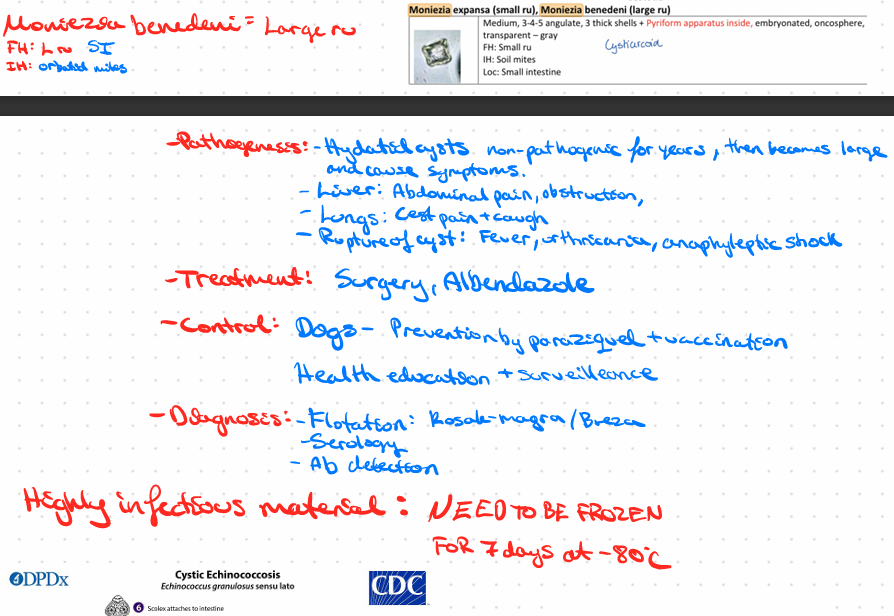 Moniezia benedeni = Large ru
FH: L ru SI
IH: orbatid mites
Moniezia expansa (small ru), Moniezia benedeni (large ru)
Medium, 3-4-5 angulate, 3 thick shells + Pyriform apparatus inside, embryonated, oncosphere,
transparent – gray
Cysticarcoid
FH: Small ru
IH: Soil mites
Loc: Small intestine
-Pathogenesis: - Hydatid cysts non-pathogenic for years, then becomes large
and cause symptoms.
- Liver: Abdominal pain, obstruction,
- Lungs: Cest pain + caugh
- Rupture of cyst: Fever, urthricaria, anaphyleptic shock
-Treatment: Surgery, Albendazole
-Control: Dogs - Prevention by paraziquel + vaccination
Health education + surveilleance
- Diagnosis: - Flotation: Rosak-magra/Breza
-Serology
- Ab detection
Highly infectious material: NEED TO BE FROZEN
FOR 7 days at -80°C
DPDx
Cystic Echinococcosis
Echinococcus granulosus sensu lato
CDC
6 Scolex attaches to intestine